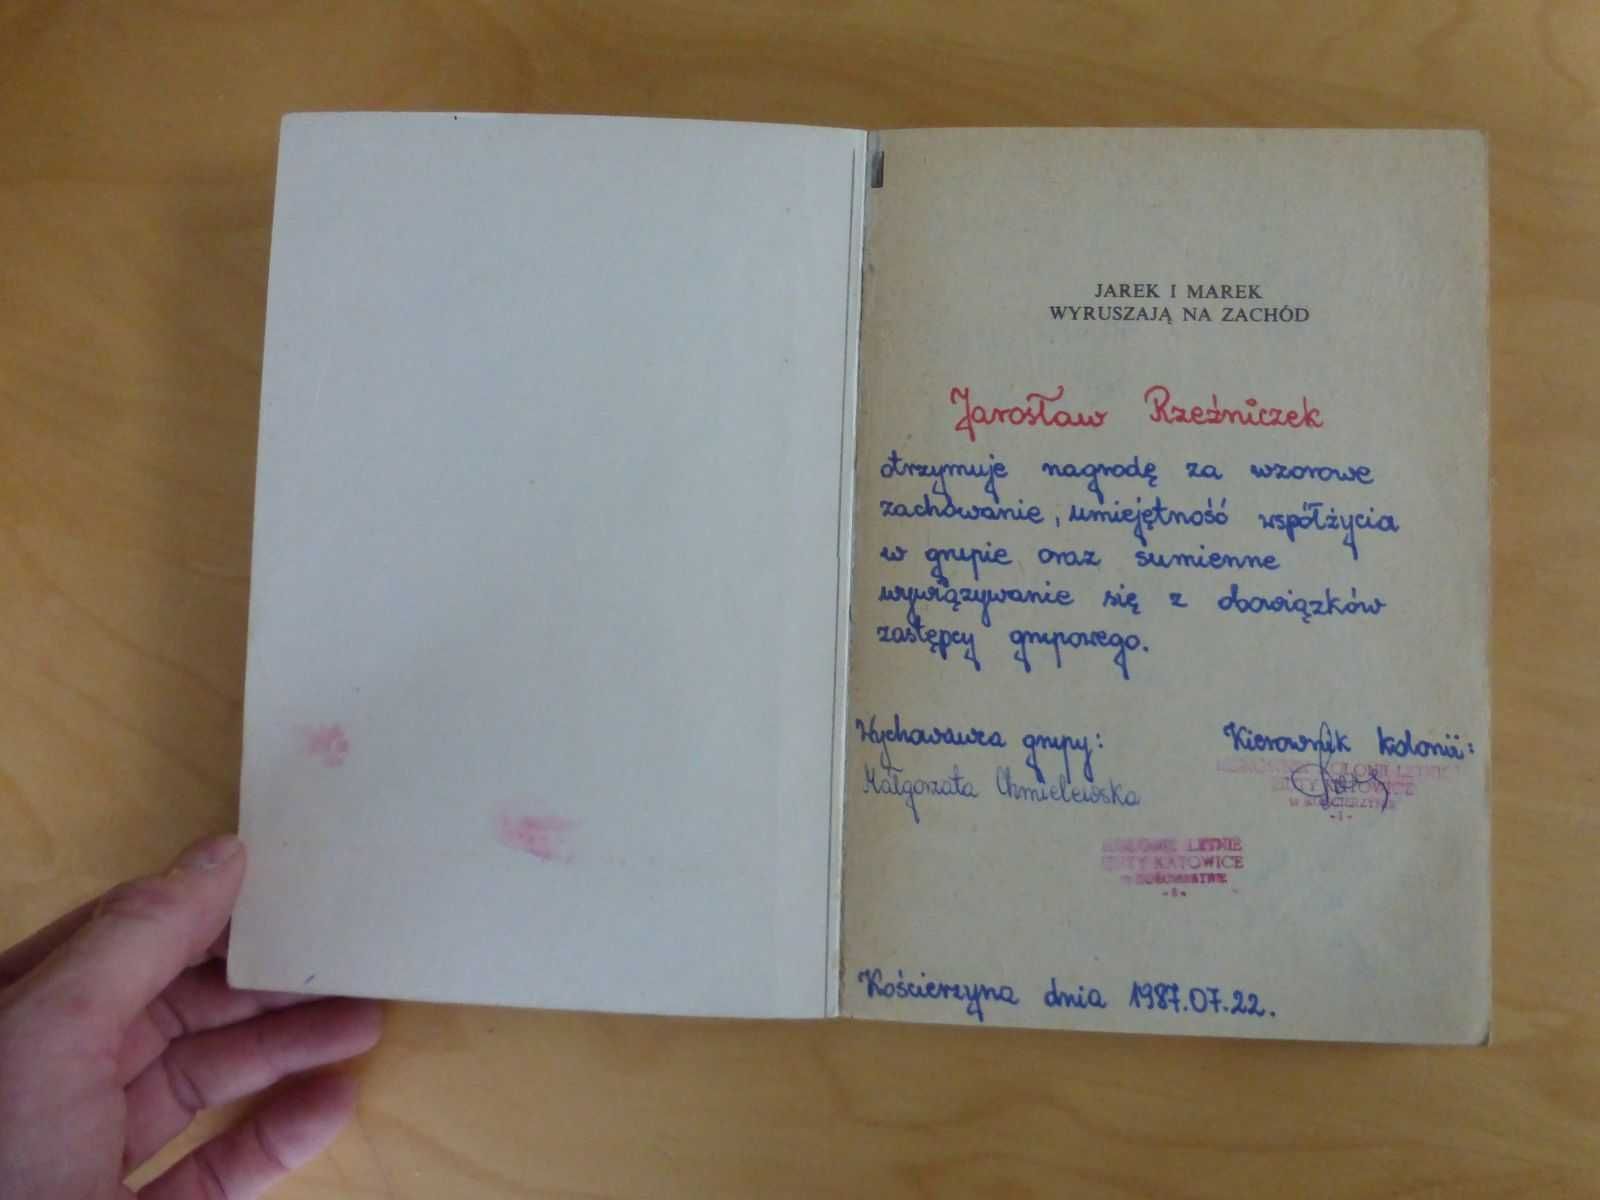 JAREK I MAREK
WYRUSZAJĄ NA ZACHÓD
Jarosław Rzeźniczek
otrzymuje nagrodę za wzorowe
zachowanie, umiejętność współżycia
w grupie oraz sumienne
wywiązywanie się z obowiązków
zastępcy grupowego.
Wychowawca grupy:
Małgorzata Chmielewska
Kierownik kolonii:
KIEROWNIK KOLONII LETNICH
HUTY KATOWICE
W KOŚCIERZYNIE
-1-
KOLONIE LETNIE
HUTY KATOWICE
W KOŚCIERZYNIE
Kościerzyna dnia 1987.07.22.